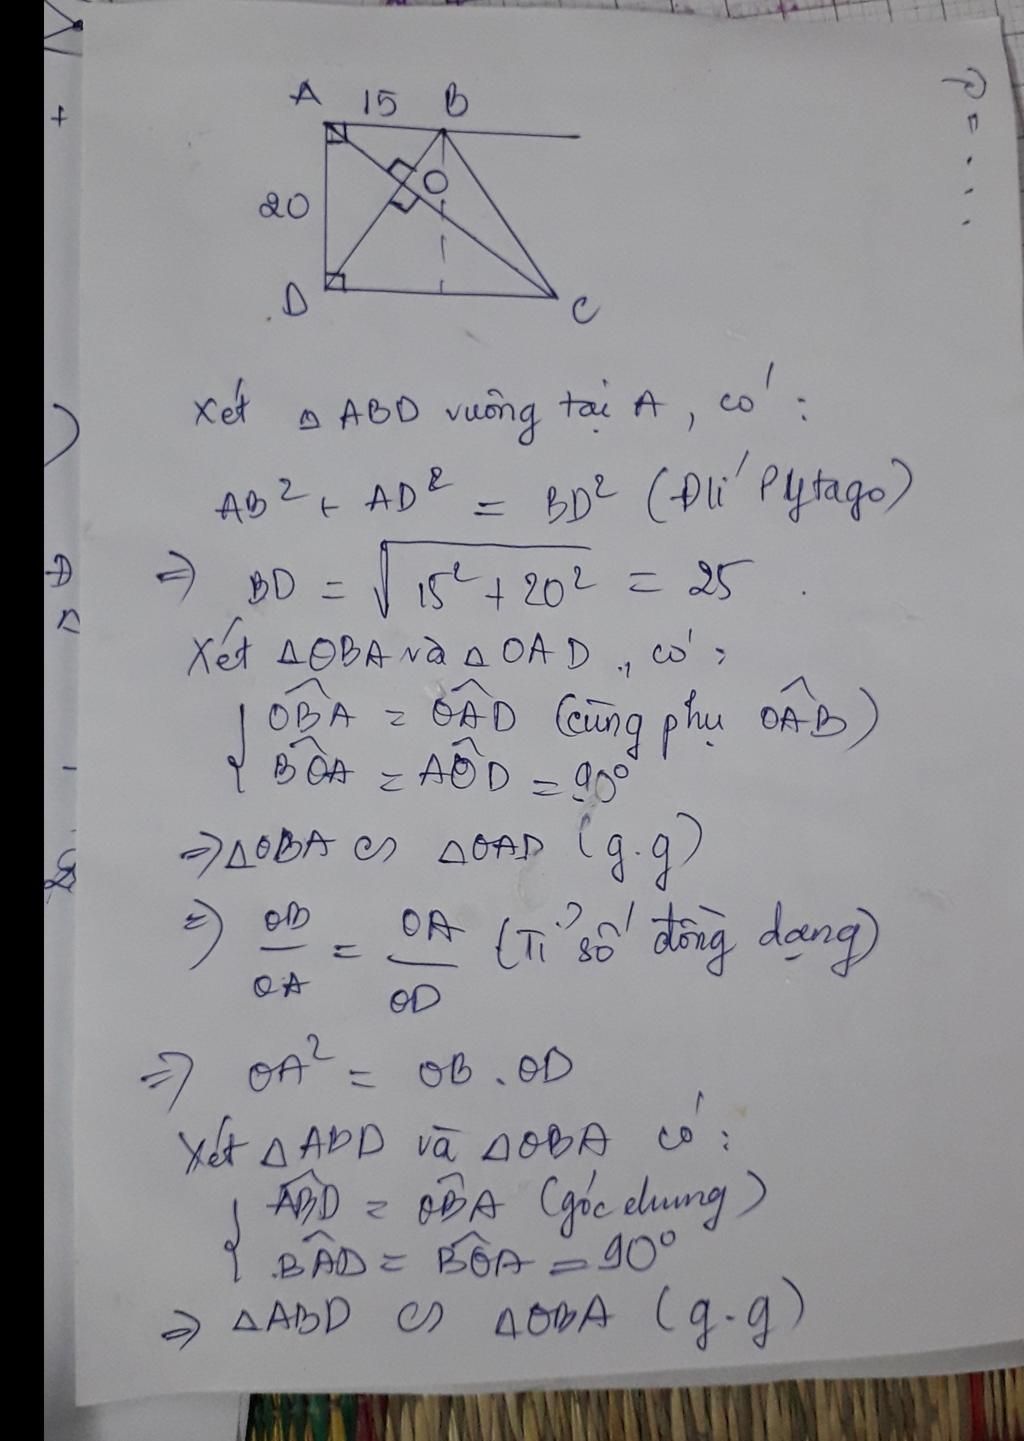 A 15 B
20
O
D
C
Xét △ABD vuông tại A, có:
AB² + AD² = BD² (Đlí Pytago)
⇒ BD = √(15² + 20²) = 25.
Xét △OBA và △OAD, có:
{ OB̂A = OÂD (cùng phụ OÂB)
BÔA = AÔD = 90°
⇒ △OBA ∽ △OAD (g.g)
⇒ OB/OA = OA/OD (Tỉ số đồng dạng)
⇒ OA² = OB . OD
Xét △ABD và △OBA có:
{ AB̂D = OB̂A (góc chung)
BÂD = BÔA = 90°
⇒ △ABD ∽ △OBA (g.g)